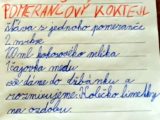 POMERANČOVÝ KOKTEJL
Šťáva z jednoho pomeranče
ml kokosového mléka
1 čajovka medu
vše dáme do džbánku a
rozmixujeme. Kolečko limetky
na ozdobu